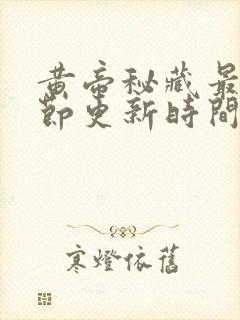 黄帝秘藏最
節更新時間
寒燈依舊